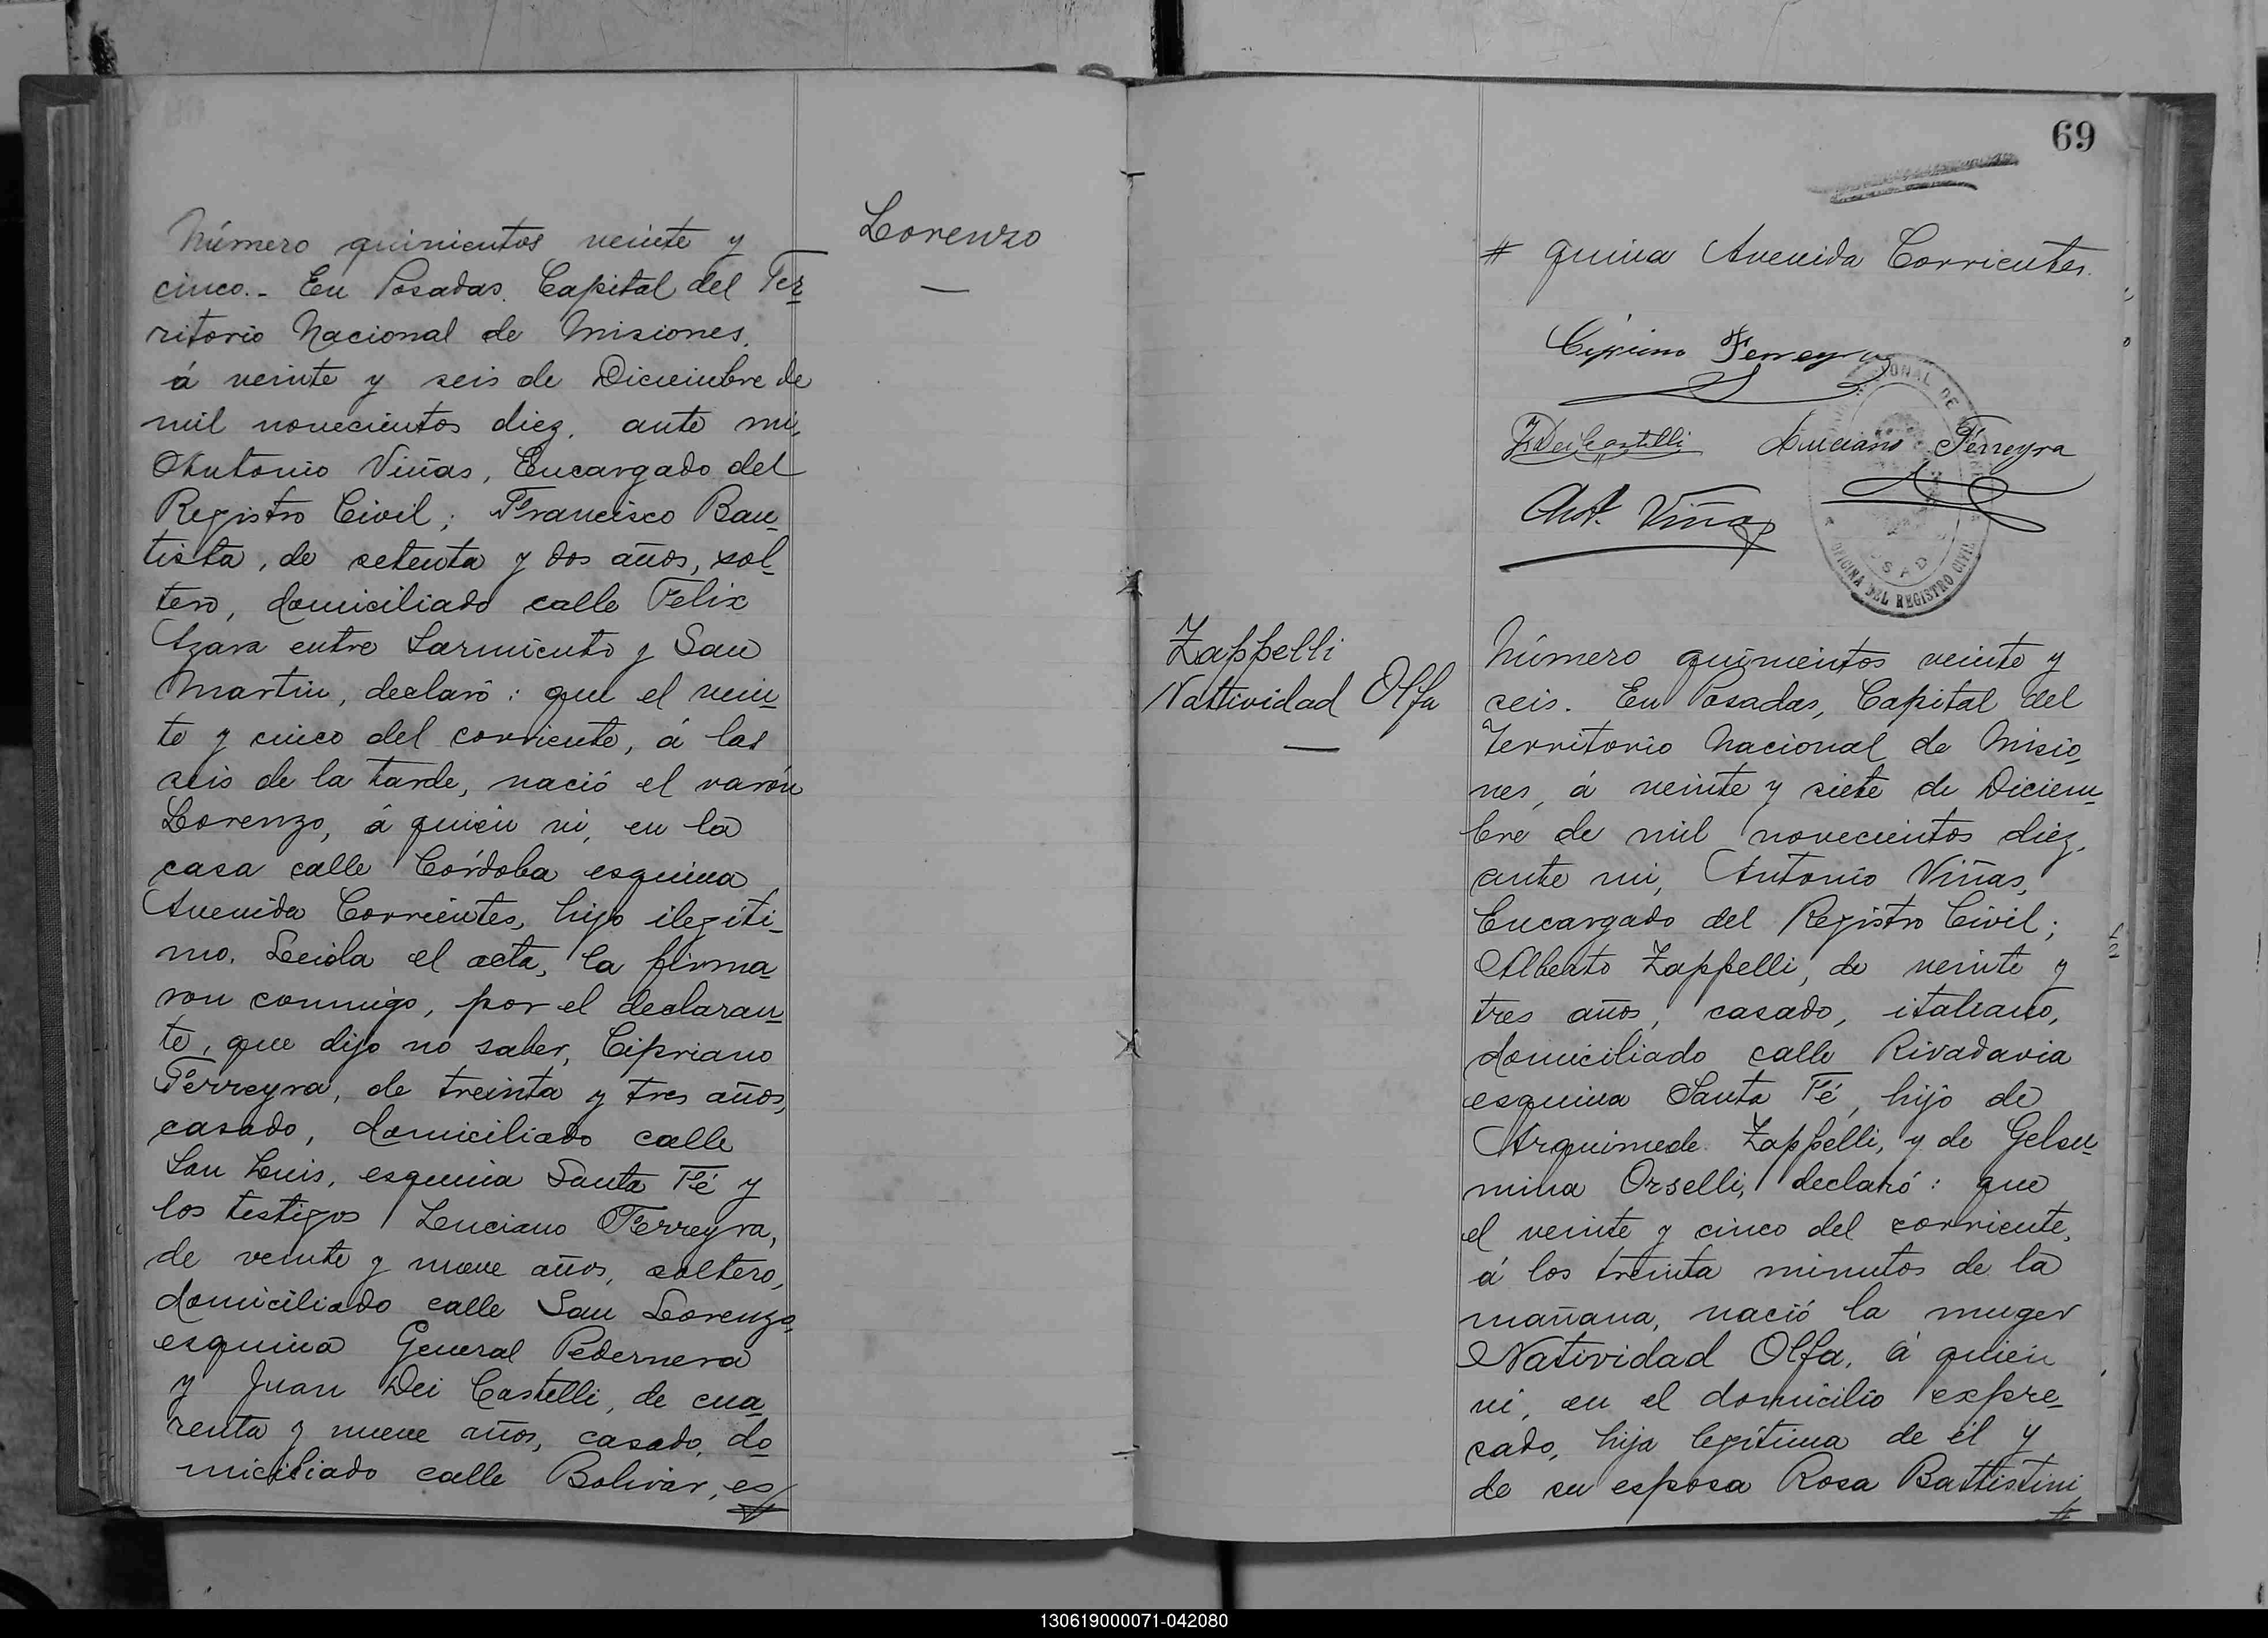 Número quinientos veinte y
cinco.- En Posadas, Capital del Ter-
ritorio Nacional de Misiones,
á veinte y seis de Diciembre de
mil novecientos diez, ante mi,
Antonio Viñas, Encargado del
Registro Civil; Francisco Bau-
tista, de setenta y dos años, sol-
tero, domiciliado calle Felix
Azara entre Sarmiento y San
Martin, declaró: que el vein-
te y cinco del corriente, á las
seis de la tarde, nació el varón
Lorenzo, á quien vi, en la
casa calle Córdoba esquina
Avenida Corrientes, hijo ilegíti-
mo. Leida el acta, la firma-
ron conmigo, por el declaran-
te, que dijo no saber, Cipriano
Ferreyra, de treinta y tres años,
casado, domiciliado calle
San Luis, esquina Santa Fé y
los testigos Luciano Ferreyra,
de veinte y nueve años, soltero,
domiciliado calle San Lorenzo,
esquina General Pedernera
y Juan Dei Castelli, de cua-
renta y nueve años, casado, do-
miciliado calle Bolivar, es
#
Lorenzo
69
# quina Avenida Corrientes.
Cipriano Ferreyra
J. Dei Castelli Luciano Ferreyra
Ant. Viñas
OFICINA DEL REGISTRO CIVIL
Zappelli
Nattividad Olfa
Número quinientos veinte y
seis. En Posadas, Capital del
Territorio Nacional de Misio-
nes, á veinte y siete de Diciem-
bre de mil novecientos diez,
ante mi, Antonio Viñas,
Encargado del Registro Civil;
Alberto Zappelli, de veinte y
tres años, casado, italiano,
domiciliado calle Rivadavia
esquina Santa Fé, hijo de
Arquimede Zappelli, y de Gelsu-
mina Orselli, declaró: que
el veinte y cinco del corriente,
á los treinta minutos de la
mañana, nació la muger
Natividad Olfa, á quien
vi, en el domicilio expre-
sado, hija legítima de él y
de su esposa Rosa Battistini
#
130619000071-042080